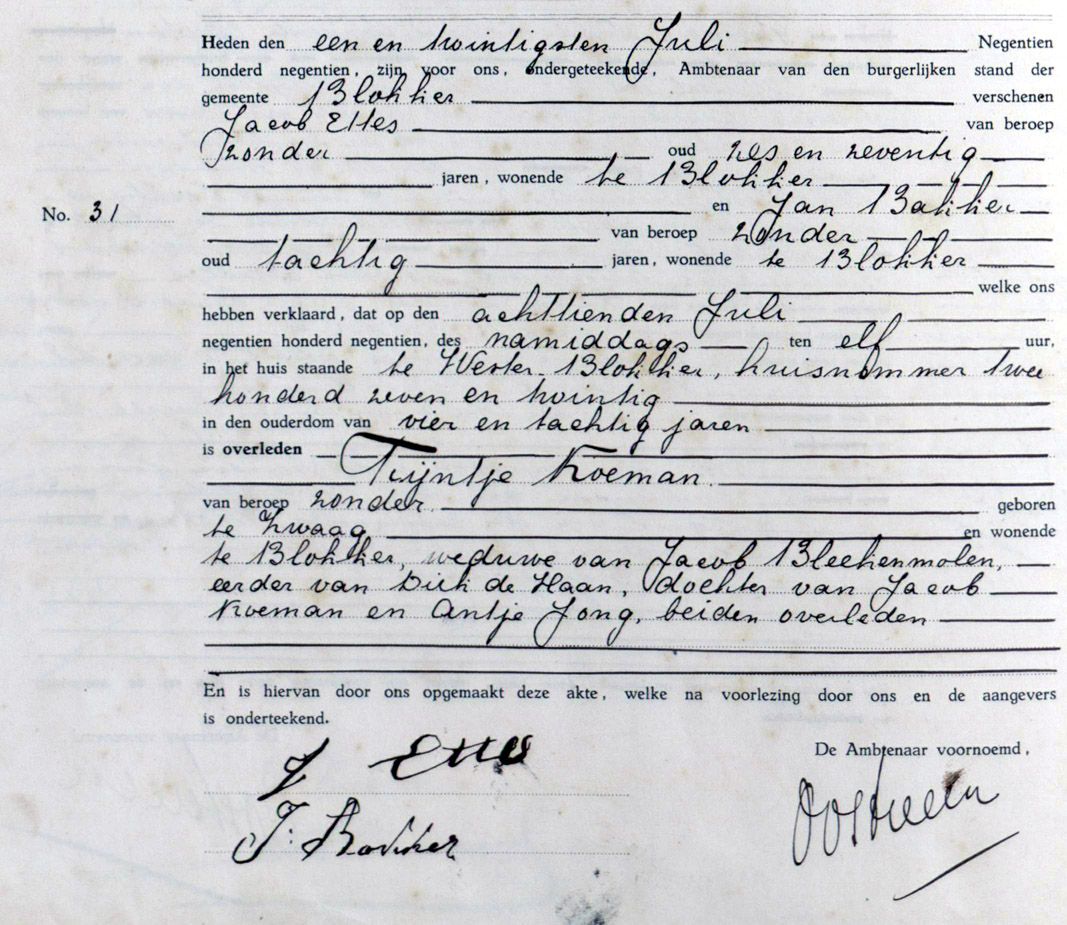 Heden den een en twintigsten Juli Negentien
honderd negentien, zijn voor ons, ondergeteekende, Ambtenaar van den burgerlijken stand der
gemeente Blokker verschenen
Jacob Ettes van beroep
zonder oud zes en zeventig
jaren, wonende te Blokker
No. 31 en Jan Bakker
van beroep zonder
oud tachtig jaren, wonende te Blokker
welke ons
hebben verklaard, dat op den achttienden Juli
negentien honderd negentien, des namiddags ten elf uur,
in het huis staande te Wester-Blokker, huisnommer twee
honderd zeven en twintig
in den ouderdom van vier en tachtig jaren
is overleden
Trijntje Koeman
van beroep zonder geboren
te Zwaag en wonende
te Blokker, weduwe van Jacob Bleekenmolen,
eerder van Dirk de Haan, dochter van Jacob
Koeman en Antje Jong, beiden overleden
En is hiervan door ons opgemaakt deze akte, welke na voorlezing door ons en de aangevers
is onderteekend.
De Ambtenaar voornoemd,
J Ettes
J. Bakker